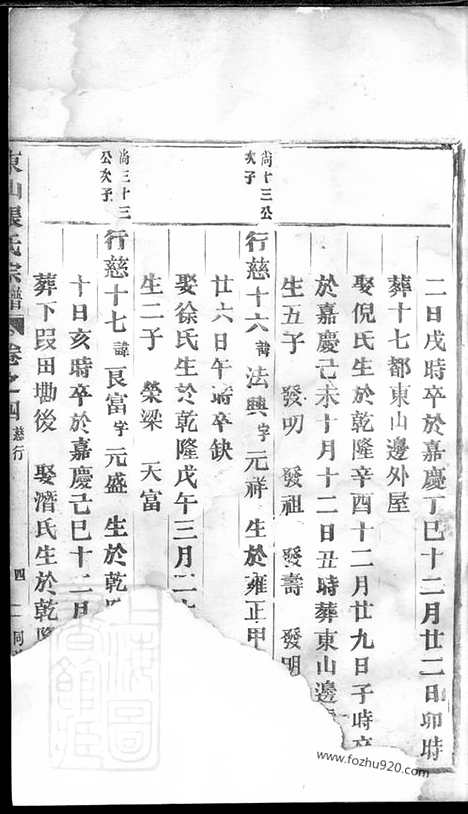 二日戌時卒於嘉慶丁巳十二月廿二日卯時
葬十七都東山邊外屋
娶倪氏生於乾隆辛酉十二月廿九日子時卒
於嘉慶己未十月十二日丑時葬東山邊
生五子 發明 發祖 發壽 發明
尚十三公
次子
行慈十六諱法興字元祥 生於雍正甲
廿六日午時卒缺
娶徐氏生於乾隆戊午三月二
生二子 榮梁 天富
尚三十三
公次子
行慈十七諱良富字元盛 生於乾隆
十日亥時卒於嘉慶己巳十二月
葬下叚田墈後 娶潛氏生於乾隆
東山張氏宗譜 卷之四 慈行
四
www.fozhu920.com